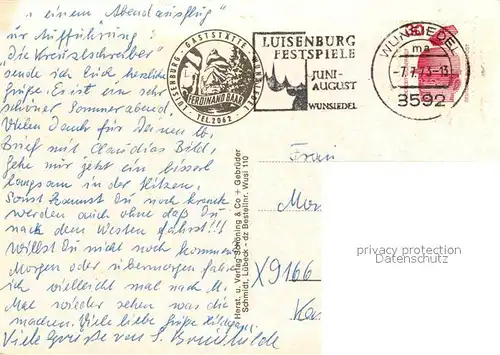 einem "Abendausflug"
zur Aufführung:
"Die Kreuzlschreiber"
sende ich Euch herzliche
Grüße. Es ist ein sehr
schöner Sommerabend.
Vielen Dank für Deinen lb.
Brief mit Claudias Bild,
Gehe mir jetzt ein bisserl
langsam in der Hitzen.
Sonst kannst Du noch krank
werden auch ohne daß Du
nach dem Westen fährst!!!
Willst Du nicht noch kommen
Morgen oder übermorgen fahre
ich vielleicht mal nach M.
Mal wieder sehen was die
machen. Viele liebe Grüße
Viele Grüsse von S. Brunhilde
LUISENBURG · GASTSTÄTTE · WUNSIEDEL
FERDINAND
TEL. 2062
LUISENBURG
FESTSPIELE
JUNI-
AUGUST
WUNSIEDEL
WUNSIEDEL
ma
-7.7.75-13
8592
Herst. u. Verlag Schöning & Co + Gebrüder
Schmidt, Lübeck - dz Bestellnr. Wusi 110
Frau
Mar
X9166
privacy protection
Datenschutz